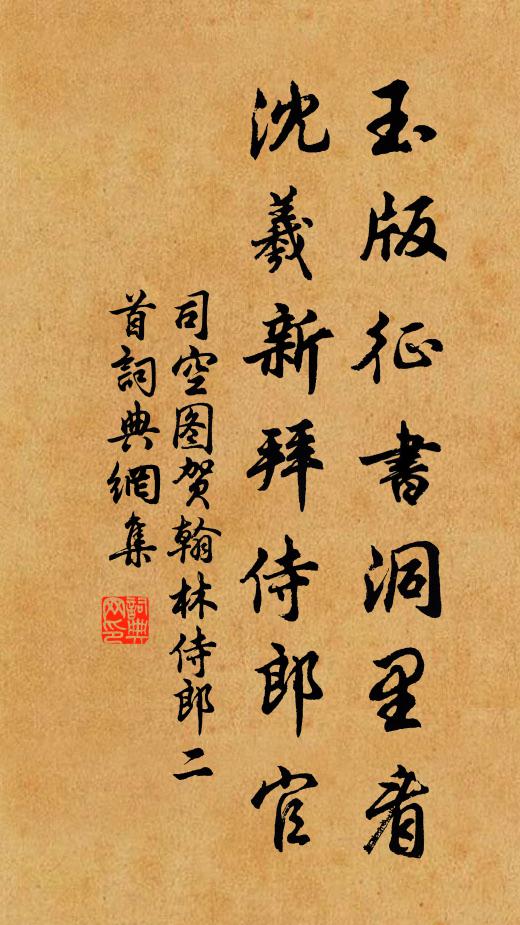 玉版征書洞里看
沈羲新拜侍郎官
司空图贺翰林侍郎二
首詞典網集
詞典
网印